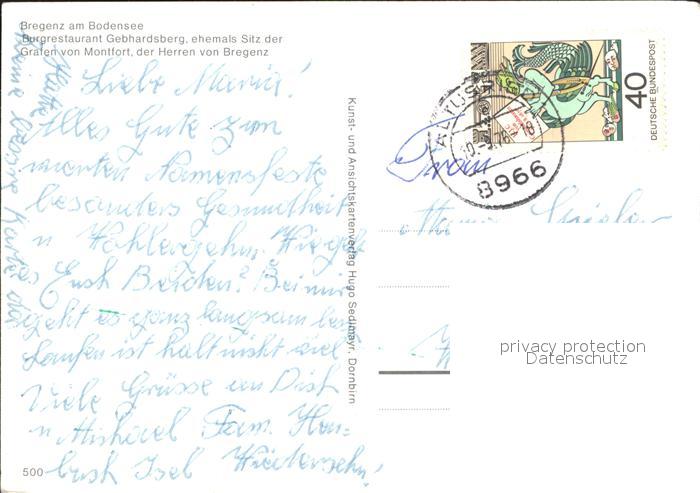 Bregenz am Bodensee
Burgrestaurant Gebhardsberg, ehemals Sitz der
Grafen von Montfort, der Herren von Bregenz
Liebe Maria!
Alles Gute zum
Namensfeste
besonders Gesundheit
u Wohlergehn. Wie geht
Euch Beiden? Bei mir
geht es ganz langsam
Laufen ist halt nicht viel
Viele Grüsse an Dich
u Michael Fam.
Wiedersehn!
500
Hatte
keine Karte da
Kunst- und Ansichtskartenverlag Hugo Sedlmayr, Dornbirn
40
DEUTSCHE BUNDESPOST
8966
Frau
privacy protection
Datenschutz